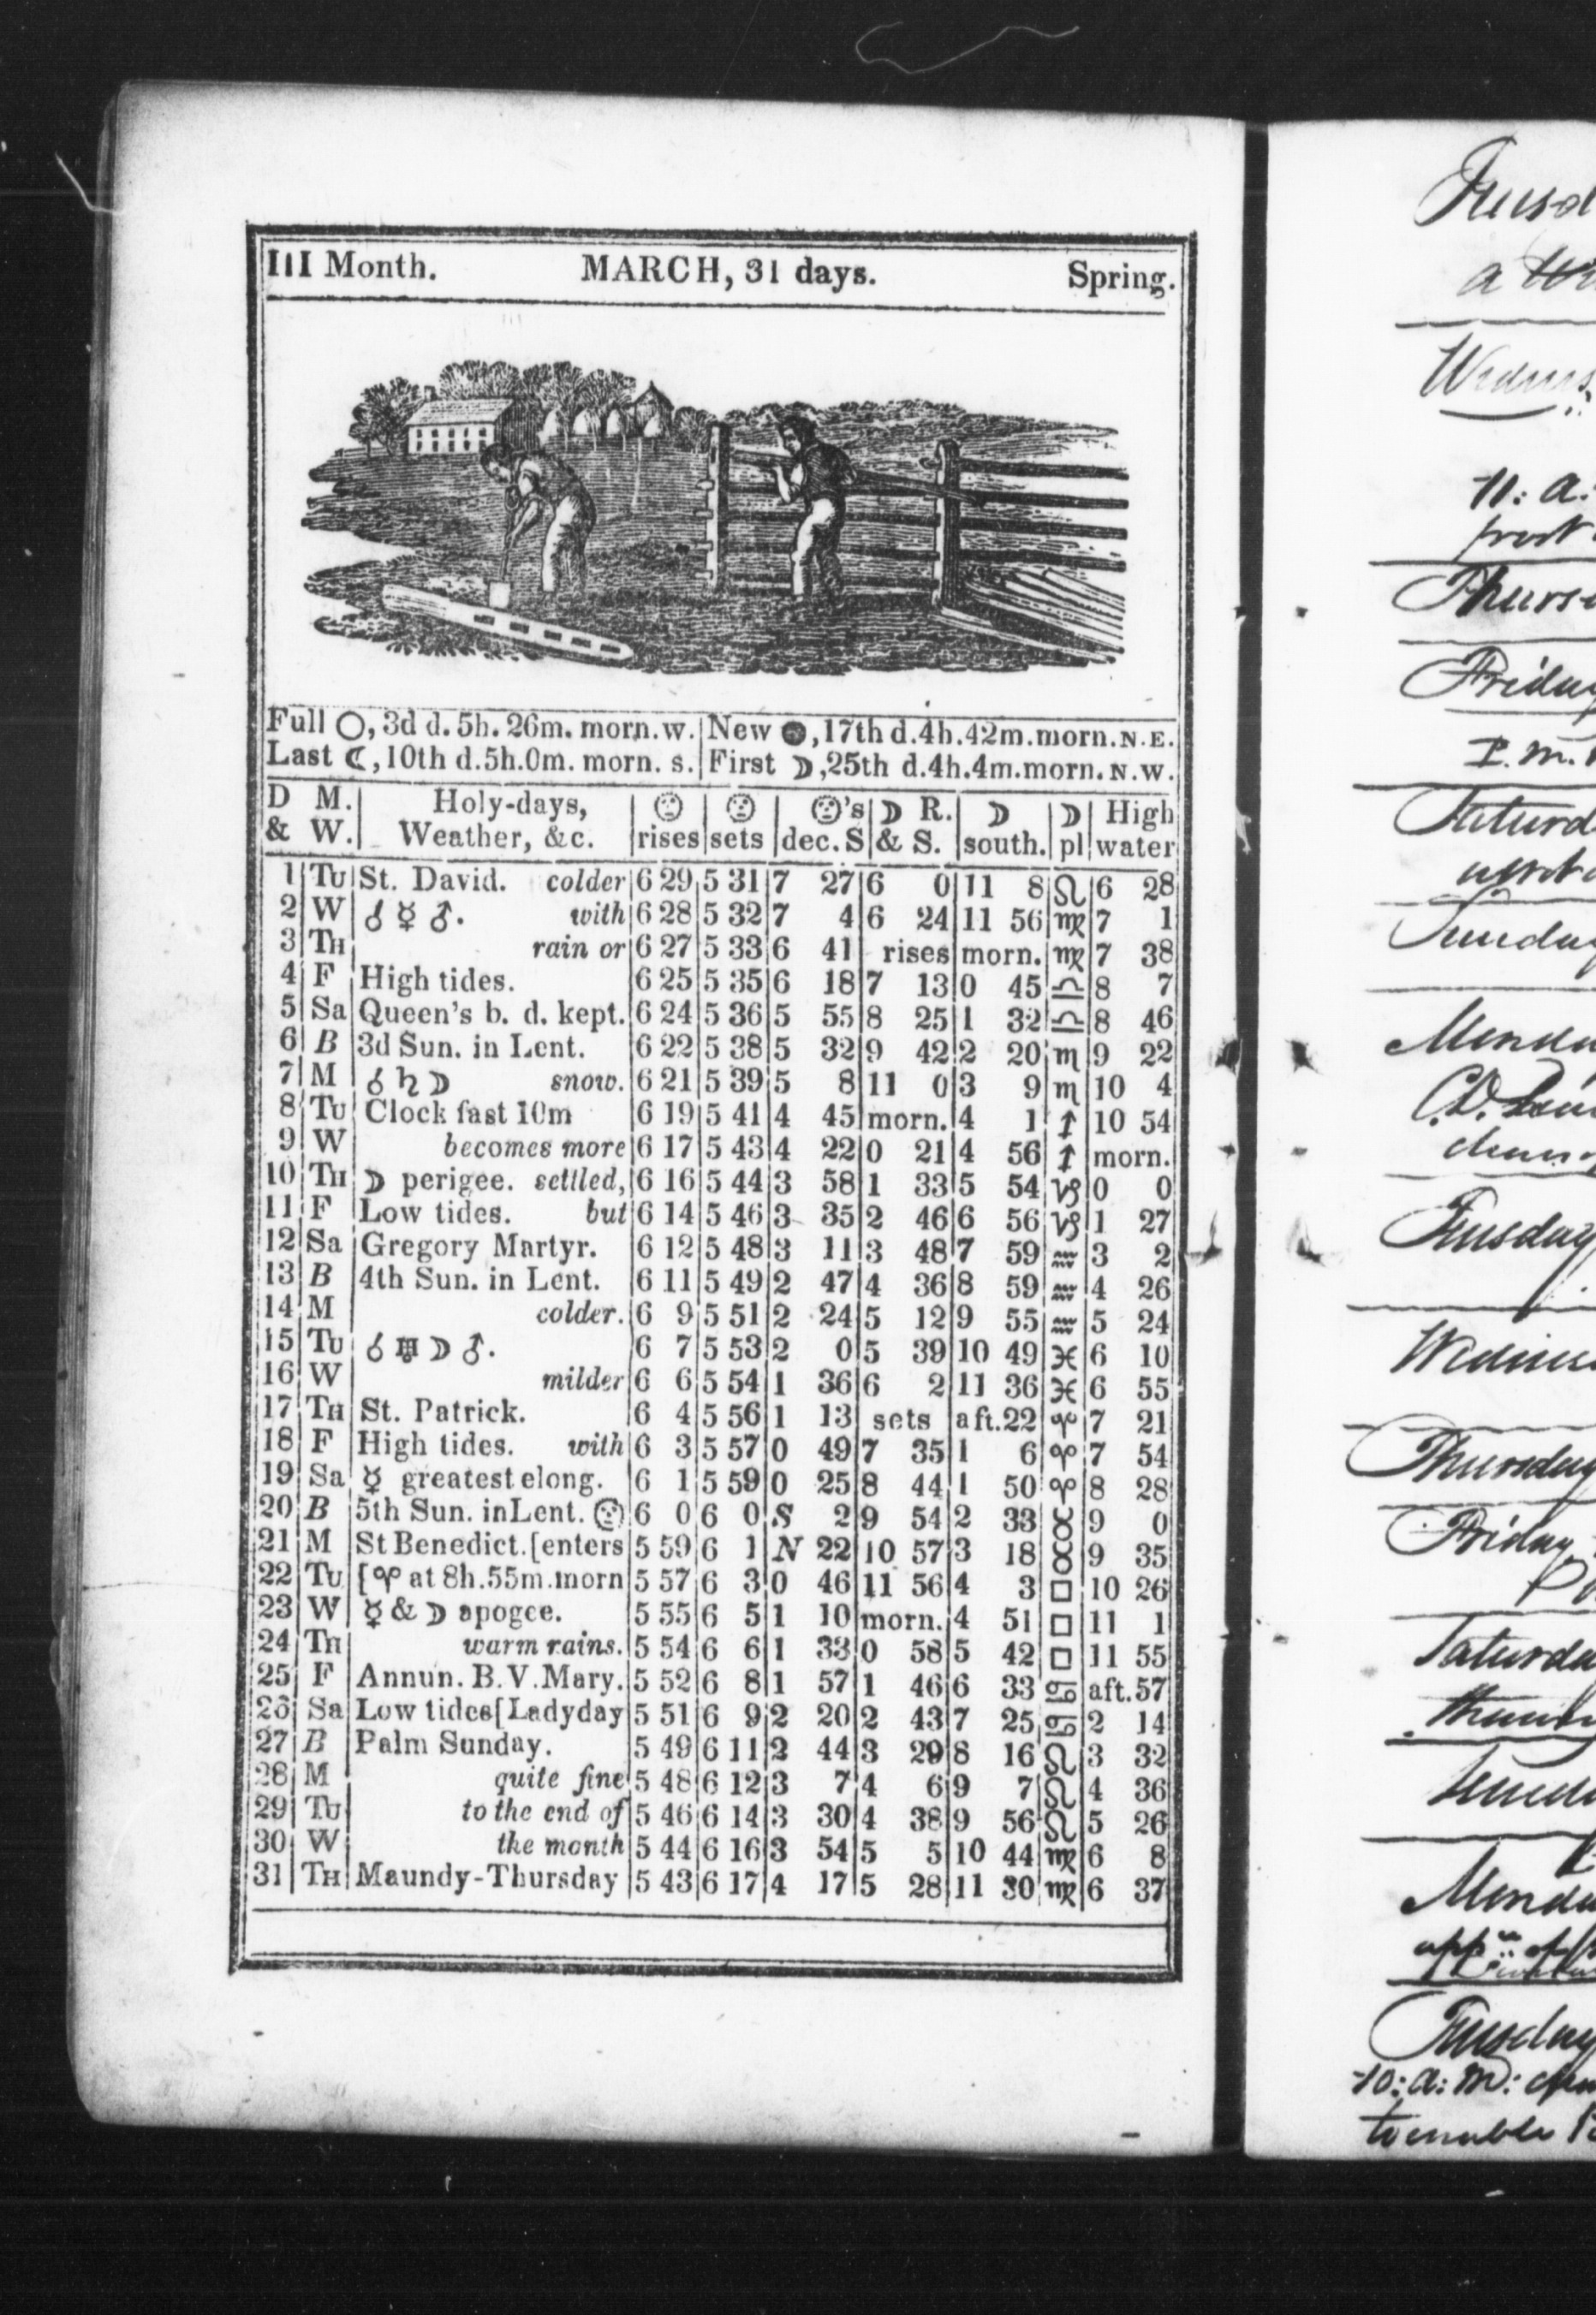 III Month. MARCH, 31 days. Spring.
Full ○, 3d d. 5h. 26m. morn. w. New ●, 17th d. 4h. 42m. morn. N. E.
Last ☾, 10th d. 5h. 0m. morn. s. First ☽, 25th d. 4h. 4m. morn. N. W.
D M. Holy-days, ☉ ☉ ☉'s ☽ R. ☽ ☽ High
& W. Weather, &c. rises sets dec. S & S. south. pl water
1 TU St. David. colder 6 29 5 31 7 27 6 0 11 8 ♌ 6 28
2 W ☌ ☿ ♂. with 6 28 5 32 7 4 6 24 11 56 ♍ 7 1
3 TH rain or 6 27 5 33 6 41 rises morn. ♍ 7 38
4 F High tides. 6 25 5 35 6 18 7 13 0 45 ♎ 8 7
5 Sa Queen's b. d. kept. 6 24 5 36 5 55 8 25 1 32 ♎ 8 46
6 B 3d Sun. in Lent. 6 22 5 38 5 32 9 42 2 20 ♏ 9 22
7 M ☌ ♄ ☽ snow. 6 21 5 39 5 8 11 0 3 9 ♏ 10 4
8 TU Clock fast 10m 6 19 5 41 4 45 morn. 4 1 ♐ 10 54
9 W becomes more 6 17 5 43 4 22 0 21 4 56 ♐ morn.
10 TH ☽ perigee. settled, 6 16 5 44 3 58 1 33 5 54 ♑ 0 0
11 F Low tides. but 6 14 5 46 3 35 2 46 6 56 ♑ 1 27
12 Sa Gregory Martyr. 6 12 5 48 3 11 3 48 7 59 ♒ 3 2
13 B 4th Sun. in Lent. 6 11 5 49 2 47 4 36 8 59 ♒ 4 26
14 M colder. 6 9 5 51 2 24 5 12 9 55 ♒ 5 24
15 TU ☌ ♅ ☽ ♂. 6 7 5 53 2 0 5 39 10 49 ♓ 6 10
16 W milder 6 6 5 54 1 36 6 2 11 36 ♓ 6 55
17 TH St. Patrick. 6 4 5 56 1 13 sets aft. 22 ♈ 7 21
18 F High tides. with 6 3 5 57 0 49 7 35 1 6 ♈ 7 54
19 Sa ☿ greatest elong. 6 1 5 59 0 25 8 44 1 50 ♈ 8 28
20 B 5th Sun. in Lent. ☉ 6 0 6 0 S 2 9 54 2 33 ♉ 9 0
21 M St Benedict. [enters 5 59 6 1 N 22 10 57 3 18 ♉ 9 35
22 TU [♈ at 8h. 55m. morn 5 57 6 3 0 46 11 56 4 3 □ 10 26
23 W ☿ & ☽ apogee. 5 55 6 5 1 10 morn. 4 51 □ 11 1
24 TH warm rains. 5 54 6 6 1 33 0 58 5 42 □ 11 55
25 F Annun. B. V. Mary. 5 52 6 8 1 57 1 46 6 33 ♋ aft. 57
26 Sa Low tides [Ladyday 5 51 6 9 2 20 2 43 7 25 ♋ 2 14
27 B Palm Sunday. 5 49 6 11 2 44 3 29 8 16 ♌ 3 32
28 M quite fine 5 48 6 12 3 7 4 6 9 7 ♌ 4 36
29 TU to the end of 5 46 6 14 3 30 4 38 9 56 ♌ 5 26
30 W the month 5 44 6 16 3 54 5 5 10 44 ♍ 6 8
31 TH Maundy-Thursday 5 43 6 17 4 17 5 28 11 30 ♍ 6 37
Tuesd
a
Wednes
11: a.
Thurs
Friday
P. m.
Saturd
Sunday
Monda
Tuesday
Wednes
Thursday
Friday
Saturda
Monda
Tuesday
10: a: m:
to enable